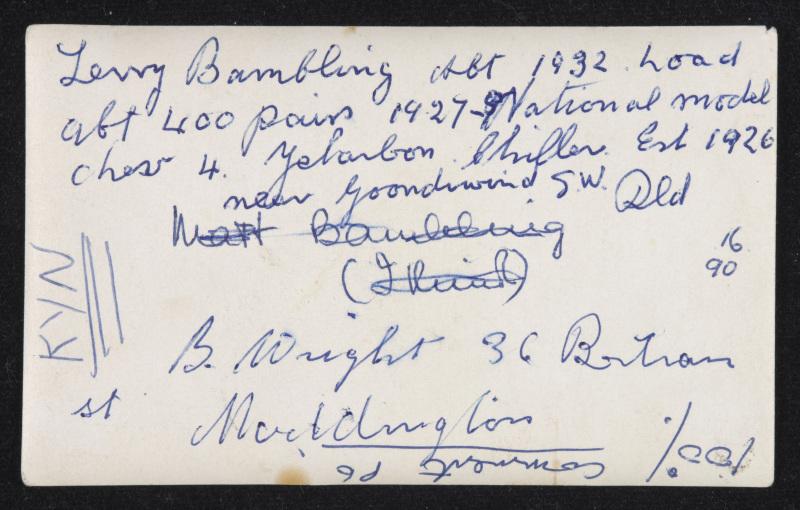 Lerry Bambling Abt 1932 Load
abt 400 pairs 1927-9 National model
Chev 4. Yelarbon Chiller. Est 1926
near Goondiwindi S.W. Qld
Matt Bambling
(I think)
16
90
KYN
B. Wright 36 Bertram
st
Maddington